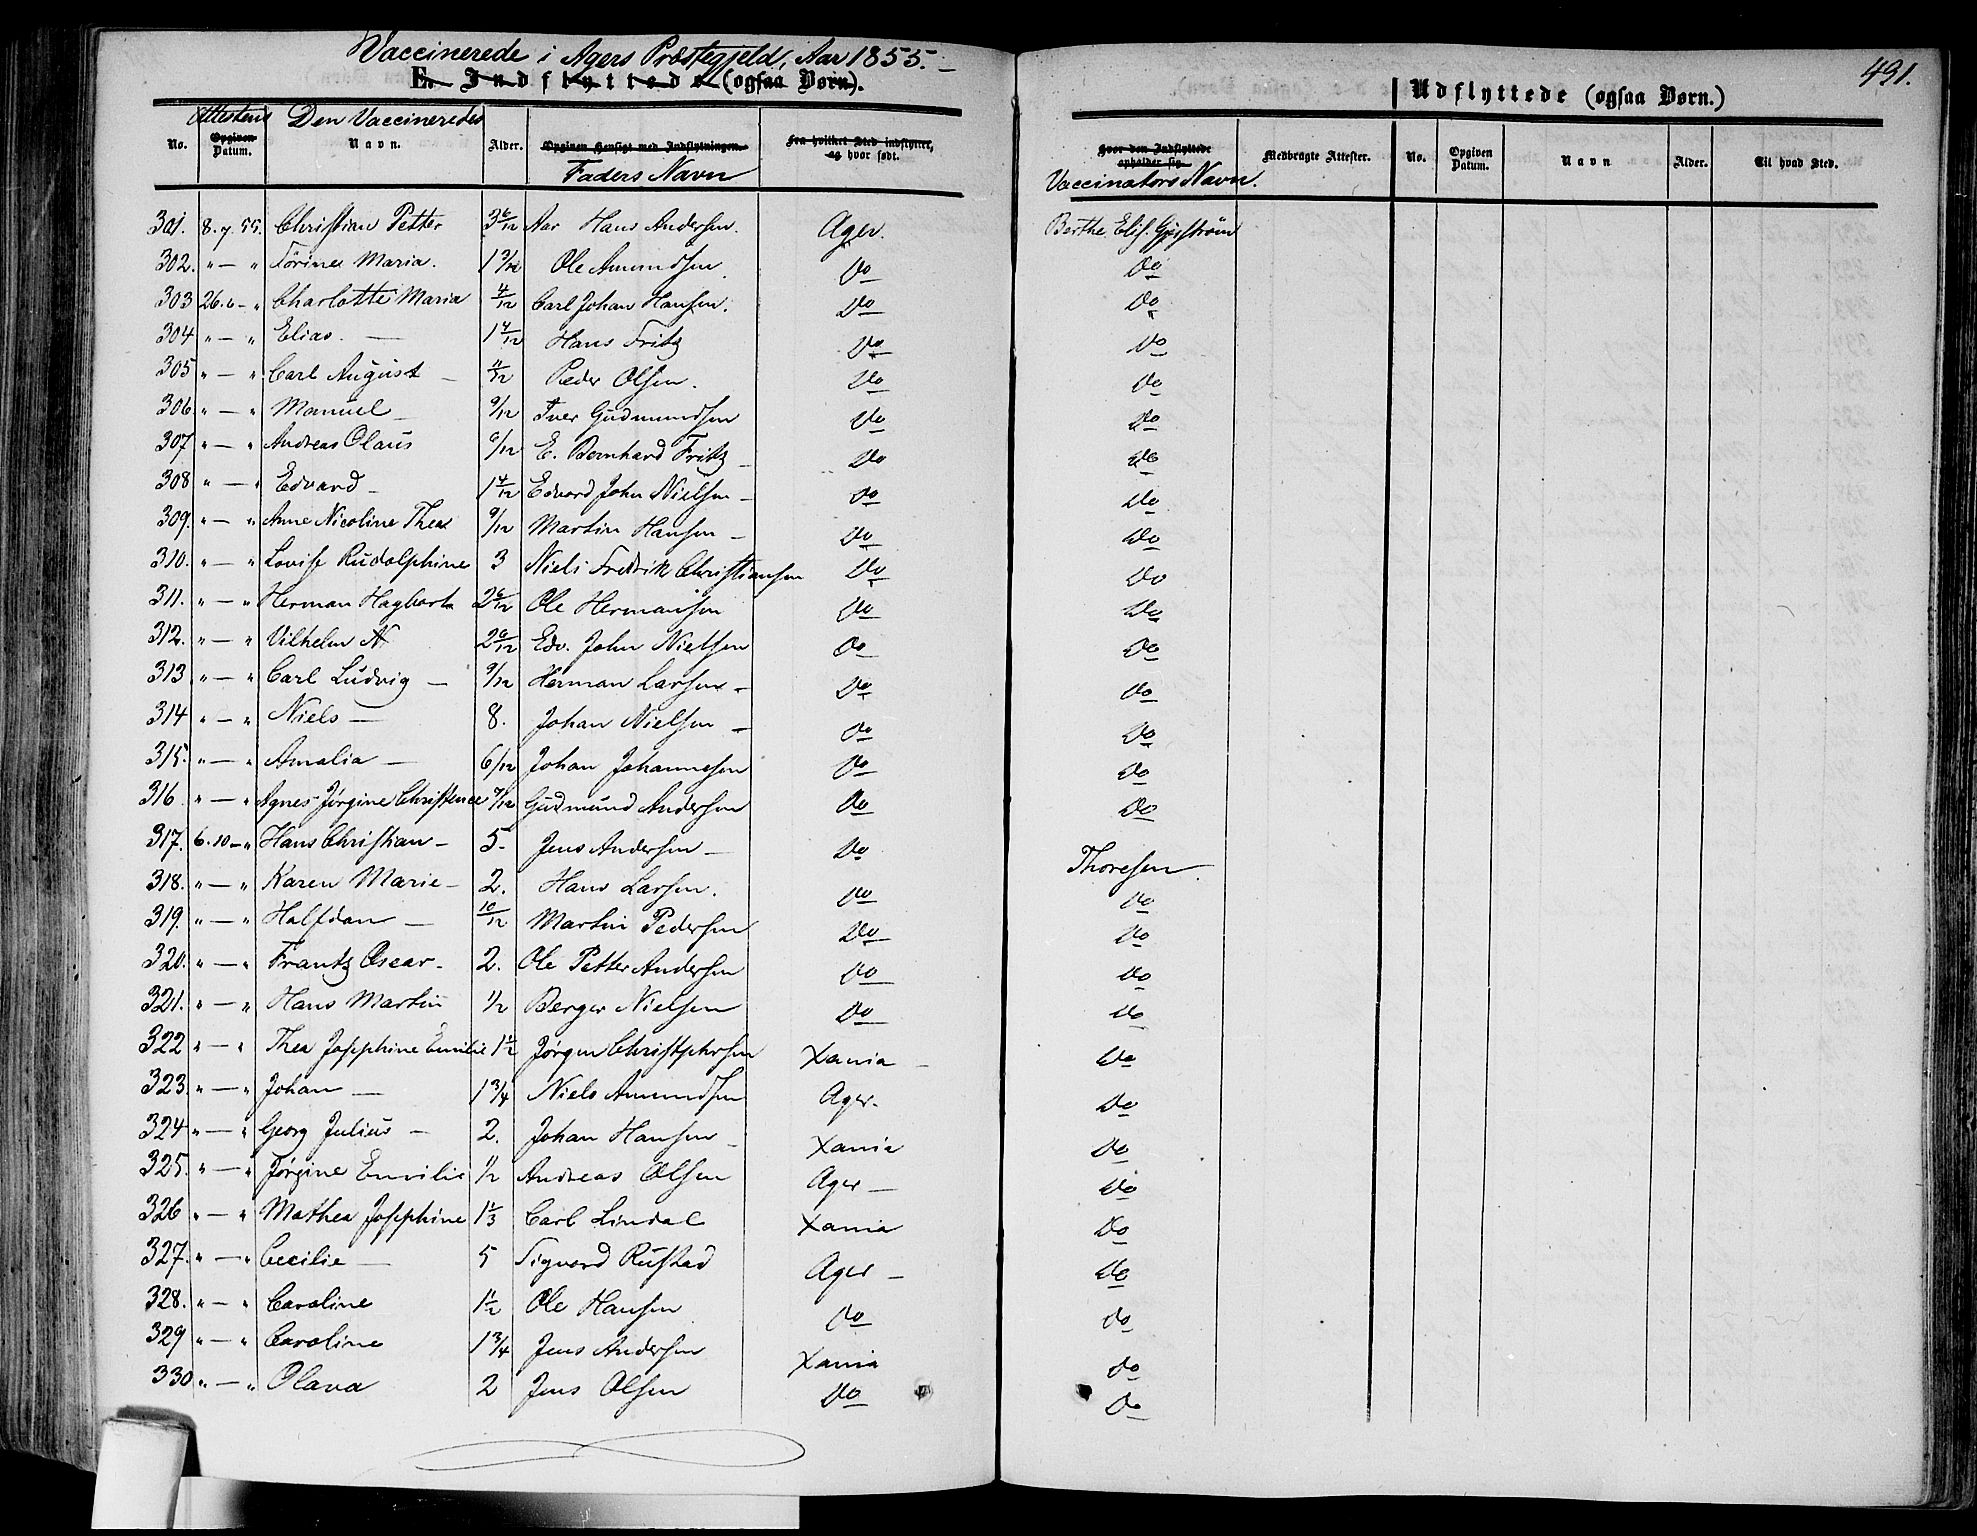 Vaccinerede i Agers Præstegjeld, Aar 1855. —
E. Indflyttede (ogsaa Børn).
491.
Udflyttede (ogsaa Børn.)
No. Attestens Opgiven Datum. Den Vaccineredes Navn. Alder. Opgiven Hensigt med Indflytningen. Faders Navn Fra hvilket Sted indflyttet, og hvor født. Hvor den Indflyttede opholder sig. Vaccinators Navn. Medbragte Attester. No. Opgiven Datum. Navn Alder. Til hvad Sted.
301. 8. 7. 55. Christian Petter 3 6/12 Aar Hans Andersen. Ager. Berthe Elis.
302. " — " Maria. 1 9/12 Ole Amundsen Do Do
303 26. 6 - " Charlotte Maria 4/12 Carl Johan Hansen. Do Do
304 " — " Elias. — 1 4/12 Hans Fritz Do Do
305 " — " Carl August — 11/12 Peder Olsen. Do Do
306. " — " Manuel — 9/12 Iver Gudmundsen Do Do
307 " — " Andreas Olaus 6/12 E. Bernhard Fritz — Do Do
308 " — " Edvard — 1 4/12 Edvard John Nielsen — Do Do
309. " — " Anne Nicoline Thea 9/12 Martin Hansen — Do Do
310. " — " Lovise Rudolphine 3 Niels Fredrik Christiansen Do Do
311. " — " Herman Hagbart 2 6/12 Ole Hermansen Do Do
312. " — " Vilhelm N 2 6/12 Edv. John Nielsen Do Do
313 " — " Carl Ludvig — 9/12 Herman Larsen — Do Do
314 " — " Niels — 8. Johan Nielsen — Do Do
315. " — " Amalia — 6/12 Johan Johannesen Do Do
316. " — " Agnes Jørgine Christence 7/12 Gudmund Andersen Do Do
317. 6. 10 — " Hans Christian — 5 — Jens Andersen — Do Thoresen.
318. " — " Karen Marie — 2. Hans Larsen. Do Do
319. " — " Halfdan — 10/12 Martin Pedersen Do Do
320. " — " Frantz Oscar — 2. Ole Petter Andersen Do Do
321. " — " Hans Martin 1/2 Berger Nielsen Do Do
322 " — " Thea Josephine Emilie 1 1/2 Jørgen Christphersen Xania — Do
323. " — " Johan — 1 3/4 Niels Amundsen Ager. Do
324 " — " Georg Julius — 2. Johan Hansen — Xania Do
325. " — " Jørgine Emilie 1/2 Andreas Olsen Ager — Do
326 " — " Mathea Josephine 1 1/3 Carl Lindal Xania Do
327. " — " Cecilie — 5 Sigvard Rustad Ager — Do
328. " — " Caroline 1 1/2 Ole Hansen Do Do
329 " — " Caroline 1 3/4 Jens Andersen Xania Do
330 " — " Olava 2 Jens Olsen Do Do